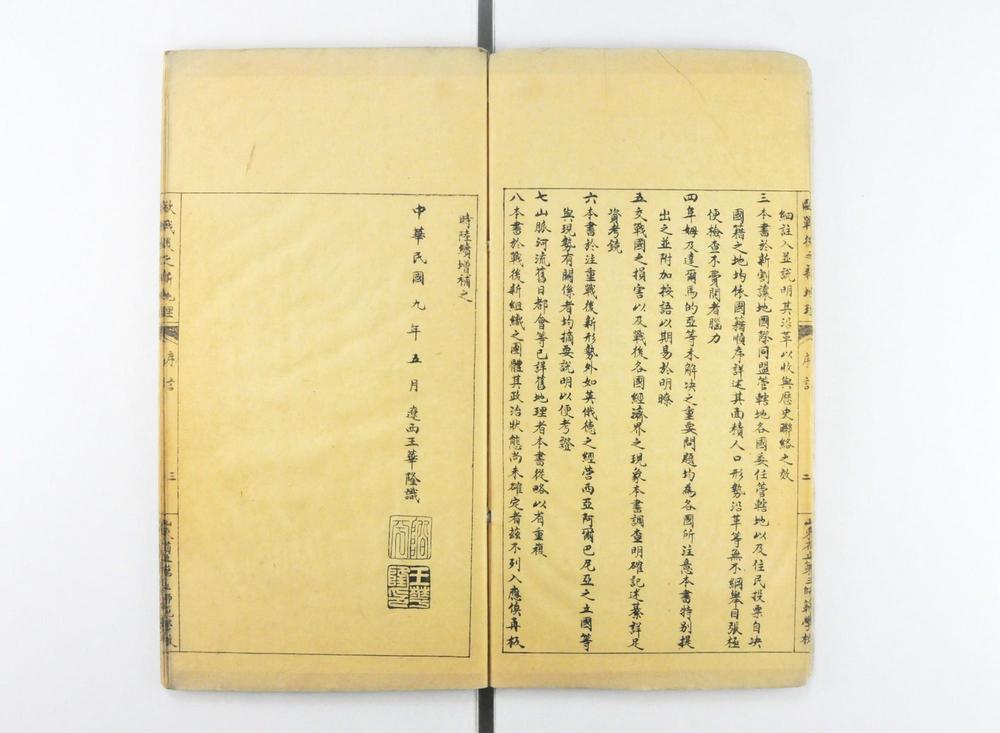 細註入並說明其沿革以收與歷史聯絡之效
三本書於新割讓地國際同盟管轄地各國委任管轄地以及住民投票自决
國籍之地均依國籍順序詳述其面積人口形勢沿革等無不綱舉目張極
便檢查不費閱者腦力
四阜姆及達爾馬的亞等未解决之重要問題均為各國所注意本書特別提
出之並附加按語以期易於明瞭
五交戰國之損害以及戰後各國經濟界之現象本書調查明確記述綦詳足
資考鏡
六本書於注重戰後新形勢外如英俄德之經營西亞阿爾巴尼亞之立國等
與現勢有關係者均摘要說明以便考證
七山脉河流舊日都會等已詳舊地理者本書從略以省重複
八本書於戰後新組織之國體其政治狀態尚未確定者茲不列入應俟再板
時陸續增補之
中華民國九年五月遼西王華隆識
王華隆
歐戰後之新地理
序言
二
山東省立第三師範學校
歐戰後之新地理
序言
三